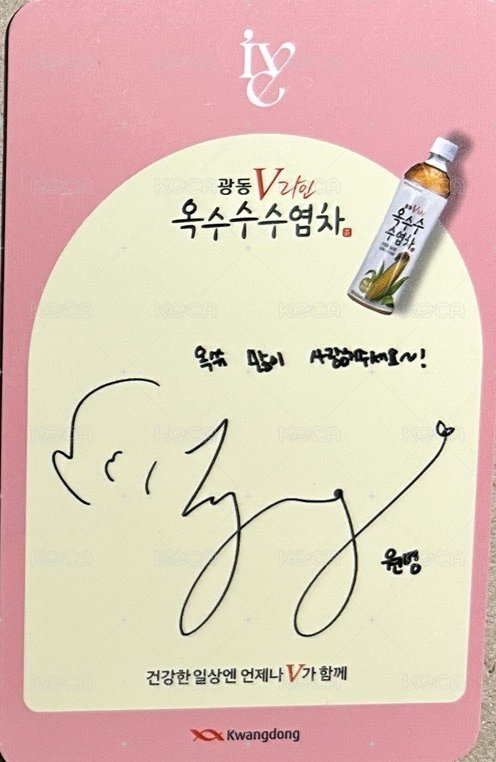 ive
광동 V라인
옥수수수염차
옥수수
수염차
옥쑤 많이 사랑해주세요~!
원영
건강한 일상엔 언제나 V가 함께
Kwangdong
KOCA